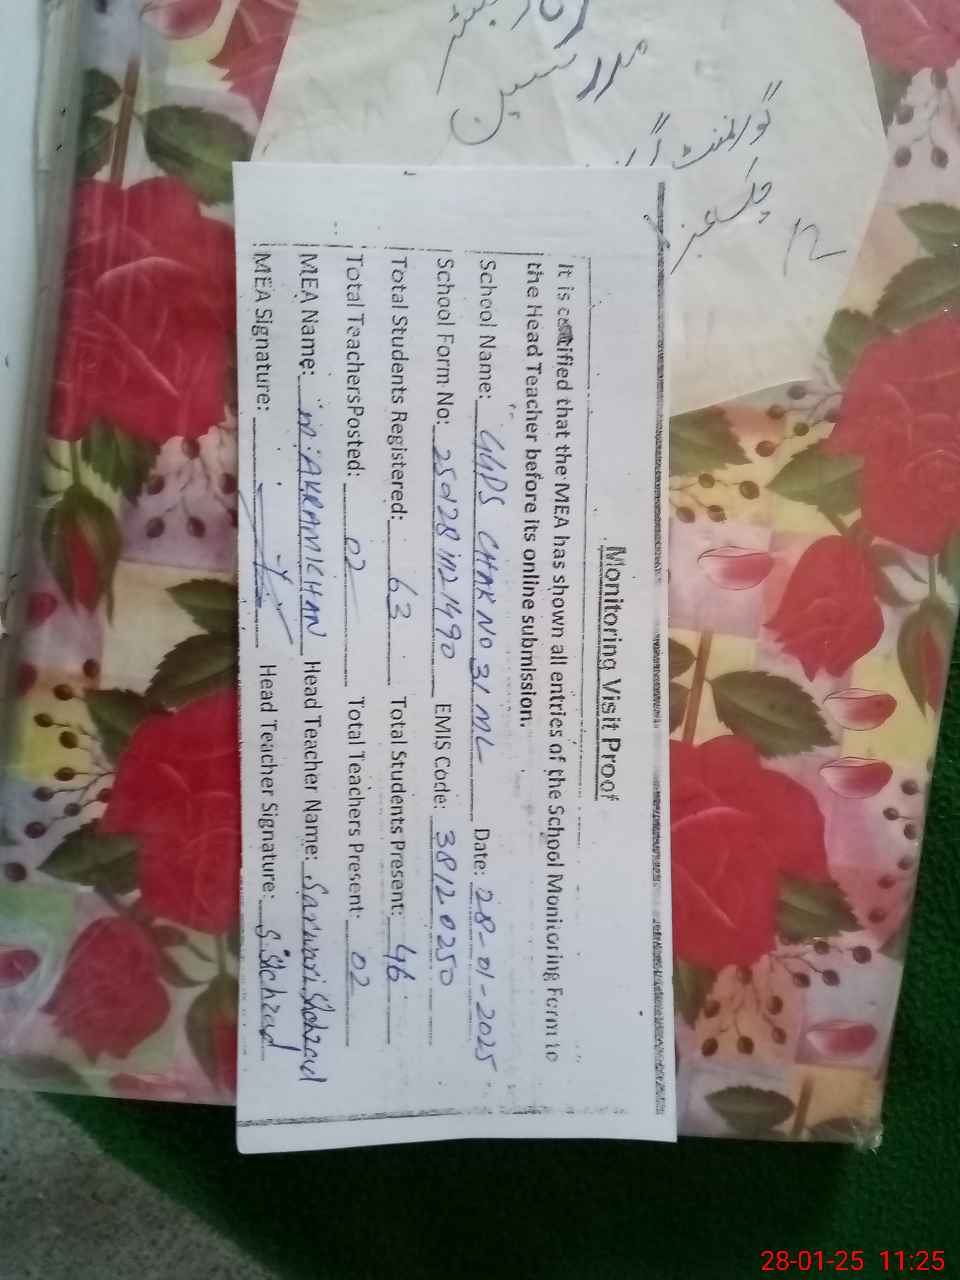 مدرسین
گورنمنٹ گرلز
چک نمبر
Monitoring Visit Proof
It is certified that the MEA has shown all entries of the School Monitoring Form to
the Head Teacher before its online submission.
School Name: GGPS CHAK NO 31 ML Date: 28-01-2025
School Form No: 25d128m21490 EMIS Code: 38120250
Total Students Registered: 63 Total Students Present: 46
Total TeachersPosted: 02 Total Teachers Present: 02
MEA Name: M. AKRAM KHAN Head Teacher Name: Sarwari Shahzad
MEA Signature: Head Teacher Signature: S. Shahzad
28-01-25 11:25